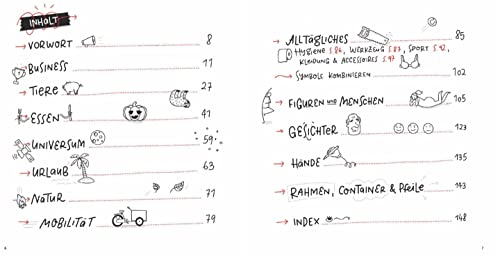 INHALT
VORWORT 8
BUSINESS 11
TIERE 27
ESSEN 41
UNIVERSUM 59
URLAUB 63
NATUR 71
MOBILITÄT 79
6
ALLTÄGLICHES 85
HYGIENE S.86, WERKZEUG S.87, SPORT S.92,
KLEIDUNG & ACCESSOIRES S.97
SYMBOLE KOMBINIEREN 102
FIGUREN UND MENSCHEN 105
GESICHTER 123
HÄNDE 135
RAHMEN, CONTAINER & PFEILE 143
INDEX 148
7